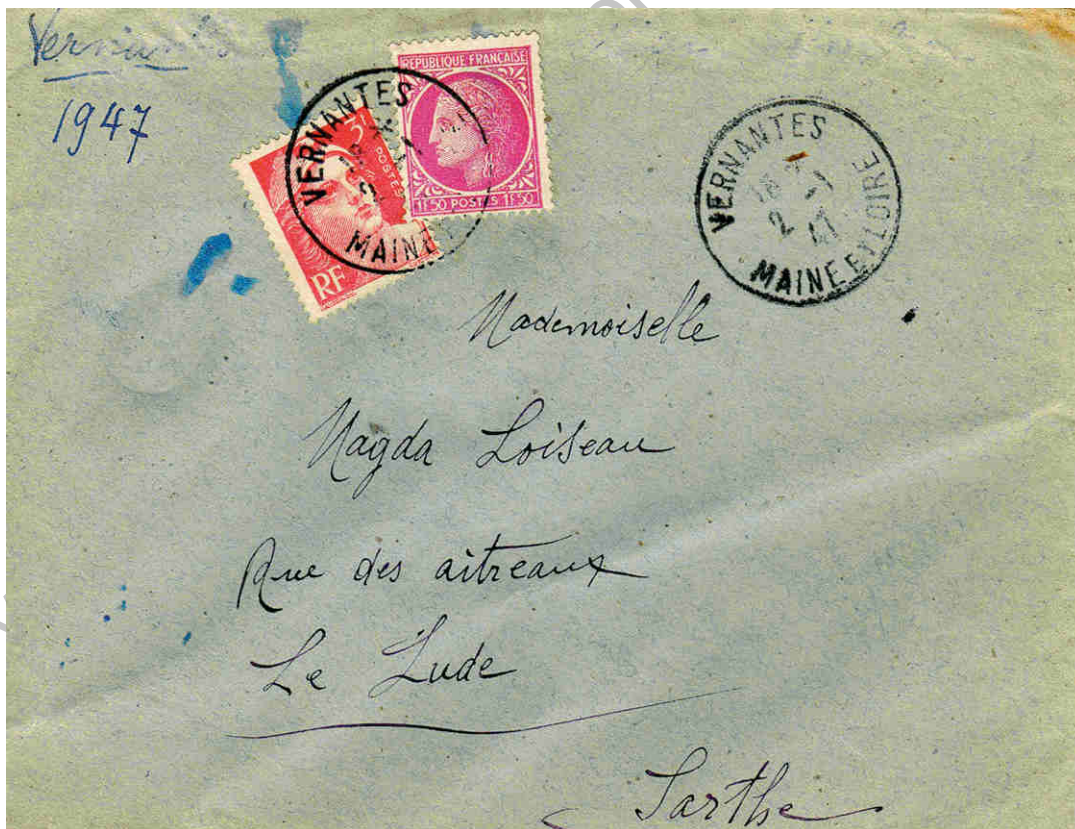 1947
REPUBLIQUE FRANÇAISE
1F50 POSTES 1F50
3F
POSTES
RF
VERNANTES
MAINE
VERNANTES
18
2 -1
47
MAINE ET LOIRE
Mademoiselle
Magda Loiseau
Rue des aitreaux
Le Lude
Sarthe